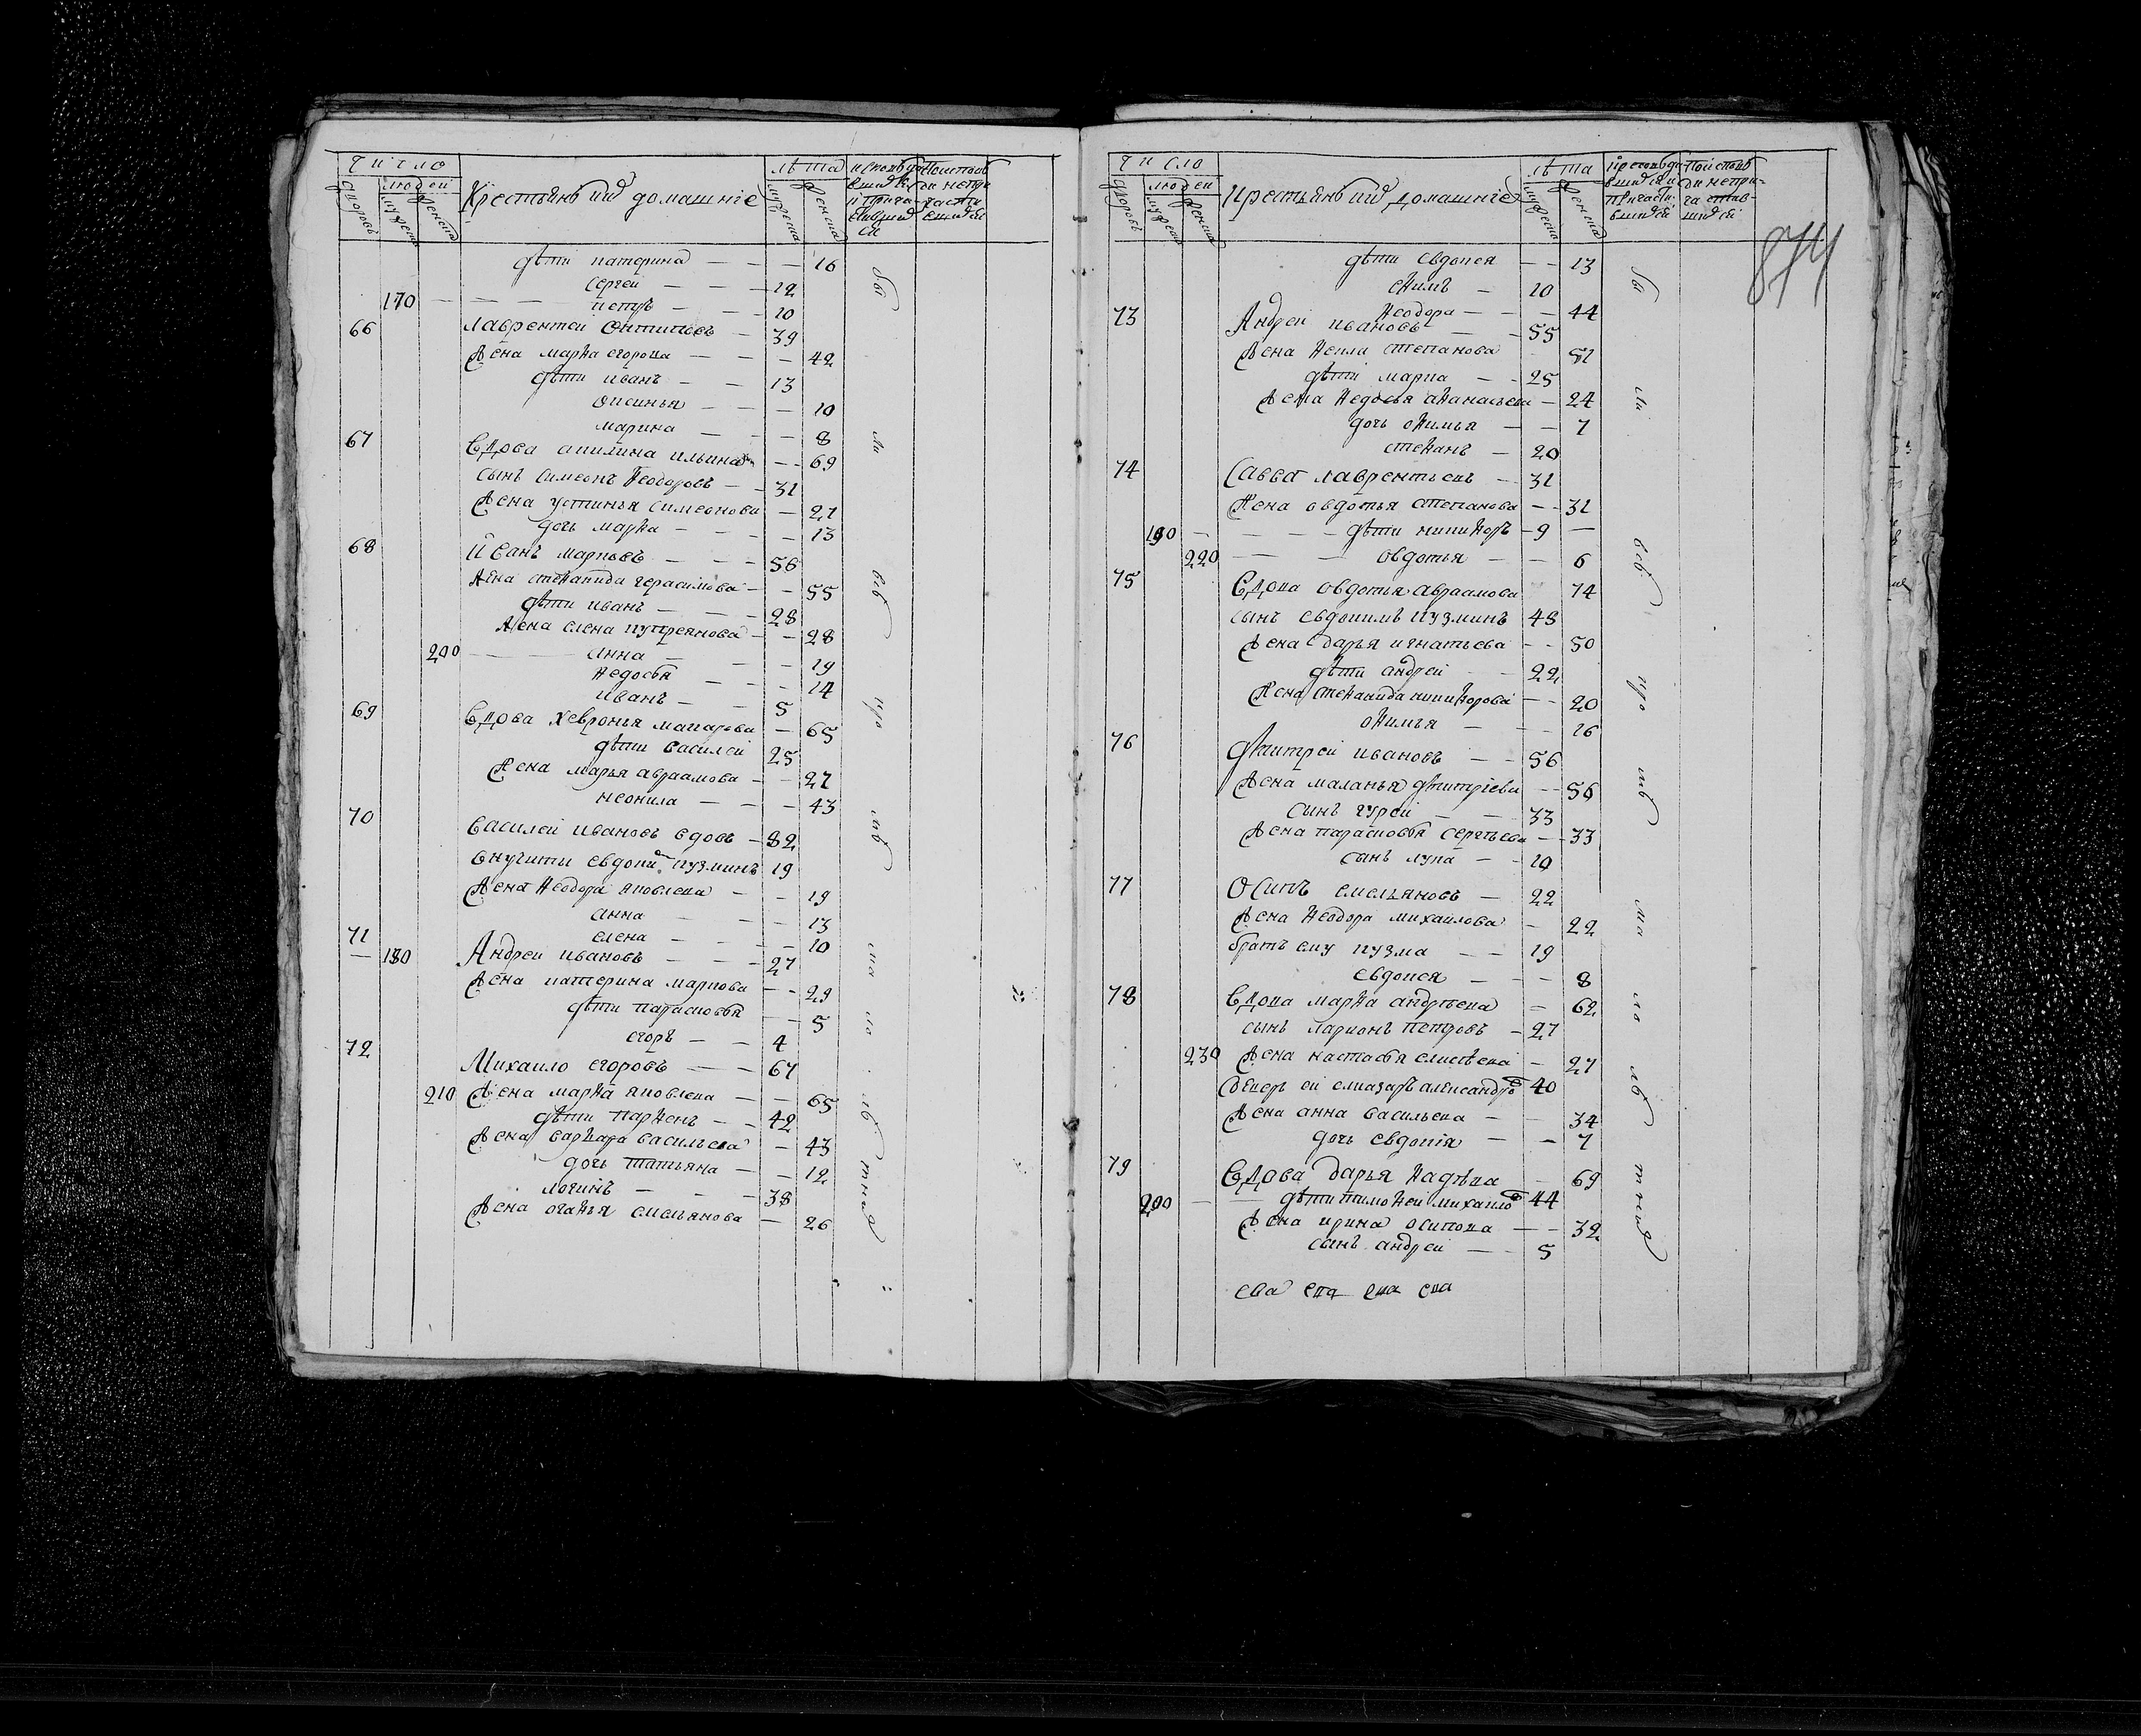 Число
людей
дворовъ
мужеска
женска
Крестьянѣ ихъ домашніе
лѣта
мужеска
женска
исповѣда
вшихся
и прича-
стивших
ся
дѣти катерина — — — 16
сергей — — — 12
170 — — — петръ — — — 10
66 Лаврентей Антиповъ — 39
Жена марѳа егорова — — — 42
дѣти иванъ — — 13
оксинья — — — 10
марина — — — 8
67 Вдова акилина ильина — — 69
сынъ симеонъ ѳеодоровъ — — 31
Жена устинья симеонова — 27
дочь марѳа — — — 13
68 Иванъ марковъ — — — 56
Жена стеѳанида герасимова — — 55
дѣти иванъ — — — 28
Жена елена купреянова — — 28
200 — — — анна — — — 19
ѳедосья — — — 14
иванъ — — 5
69 Вдова хевронья макарова — 65
дѣти василей 25
Жена марья авраамова — — 27
неонила — — — 43
70 Василей ивановъ вдовъ — 82
внучиты евдокимъ кузминъ 19
Жена ѳеодора яковлева — — 19
анна — — — 13
елена — — — 10
71 — 180 Андреи ивановъ — — — 27
Жена катерина маркова — — 29
дѣти парасковья — — 5
егоръ — — 4
72 Михаило егоровъ — — 67
210 Жена марѳа яковлева — — 65
дѣти парѳенъ — — 42
Жена варвара васильева — 43
дочь татьяна — — 12
логинъ — — — 38
Жена огаѳья емельянова — 26
всѣ
Число
людей
дворовъ
мужеска
женска
Крестьянѣ ихъ домашніе
лѣта
мужеска
женска
874
дѣти евдокея — — 13
еѳимъ — 10
ѳеодора — — — 44
73 Андрей ивановъ — — 55
Жена ѳекла степанова 51
дѣти марка — — 25
Жена ѳедосья аѳанасьева — 24
дочь оѳимья — — 7
стеѳанъ — 20
74 Савва лаврентьевъ — 31
Жена овдотья степанова — — 31
190 — — — — дѣти никиѳоръ — 9 —
220 — — овдотья — — 6
75 Вдова овдотья авраамова 74
сынъ евдокимъ кузминъ 48
Жена дарья игнатьева — — 50
дѣти андрей — — 22
Жена стеѳанида никиѳорова — — 20
оѳимья — — — 16
76 Дмитрей ивановъ — — 56
Жена маланья дмитріева — — 56
сынъ гурей — — 33
Жена парасковья сергѣева — — 33
сынъ лука — — 10
77 Осипъ емельяновъ — 22
Жена ѳеодора михаилова — 22
братъ ему кузма — — 19
евдокея — — — 8
78 Вдова марѳа андрѣева — 62
сынъ ларионъ петровъ — 27
230 Жена настасья елисѣева — 27
деверь ей елиазаръ александровъ 40
Жена анна васильева — — 34
дочь евдокія — — 7
79 Вдова дарья ѳадѣева — 69
200 — — дѣти тимоѳеи михаиловъ 44
Жена ирина осипова — — 32
сынъ андреи — — 5
ева ева ева ева
всѣ